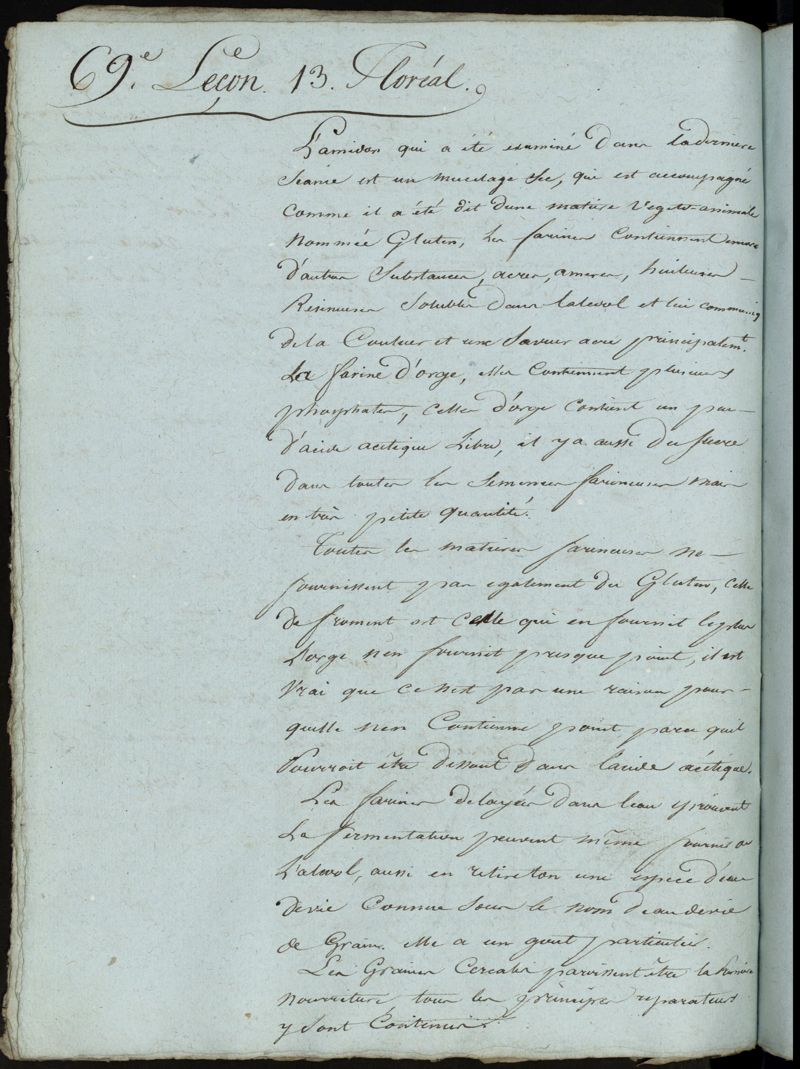 69.e Leçon. 13. Floréal.
L'amidon qui a été examiné dans la derniere
Seance est un mucilage sec, qui est accompagné
comme il a été dit d'une matiere végéto-animale
nommée Gluten, les farines contiennent encore
d'autres Substances, acres, ameres, huileuses
Résineuses solubles dans l'alcool et lui communiq
de la Couleur et une Saveur acre principalemt.
La farine d'orge, elles contiennent plusieurs
phosphates, celle d'orge contient un peu
d'acide acétique Libre, il y a aussi du sucre
dans toutes les Semences farineuses mais
en très petite quantité.
Toutes les matieres farineuses ne
fournissent pas également du Gluten, celle
de froment est celle qui en fournit le plus
L'orge n'en fournit presque point, il est
Vrai que ce n'est pas une raison pour
qu'elle n'en Contienne point parce qu'il
Pourroit être dissout dans l'acide acétique.
Les farines délayées dans l'eau éprouvent
La fermentation peuvent même fournir
L'alcool, aussi en retire t'on une espece d'eau
de vie Connue sous le nom d'eau de vie
de Grains. elle a un gout particulier.
Les Graines Céréales paroissent être la
nourriture tous les principes réparateurs
y sont Contenus.